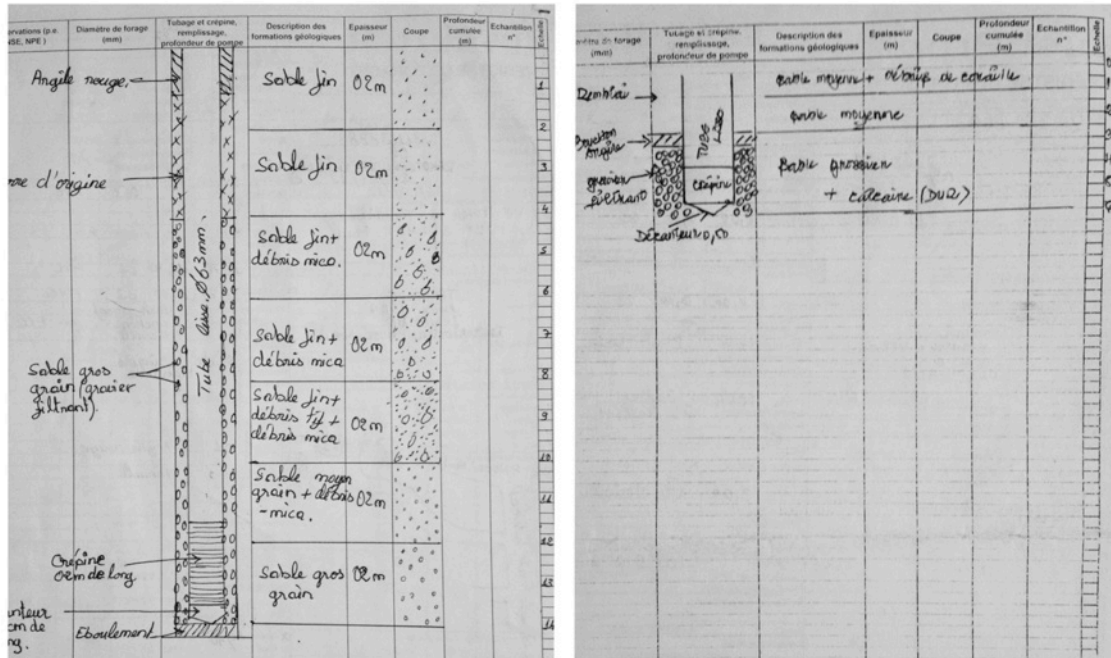 ervations (p.e.
NSE, NPE )
Diamètre de forage
(mm)
Tubage et crépine,
remplissage,
profondeur de pompe
Description des
formations géologiques
Epaisseur
(m)
Coupe
Profondeur
cumulée
(m)
Echantillon
n°
Echelle
Argile rouge.
Sable fin 02m
1
2
Sable fin 02m
3
d'origine
4
Sable fin+
débris mica. 02m
5
6
Tube Lisse. Ø63mm.
Sable fin+
débris mica 02m
7
8
Sable gros
grain (gravier
filtrant).
Sable fin+
débris mica
02m
9
10
Sable moyen
grain + débris
-mica.
02m
11
12
Crépine
02m de long
Sable gros
grain
02m
13
14
anteur
cm de
ng.
Eboulement
mètre de forage
(mm)
Tubage et crépine,
remplissage,
profondeur de pompe
Description des
formations géologiques
Epaisseur
(m)
Coupe
Profondeur
cumulée
(m)
Echantillon
n°
Echelle
Remblai
TUBE
sable moyenne + débris de
sable moyenne
Bouchon
Argile
crépine
sable grossier
+ calcaire (DUR)
Décanteur 0,50